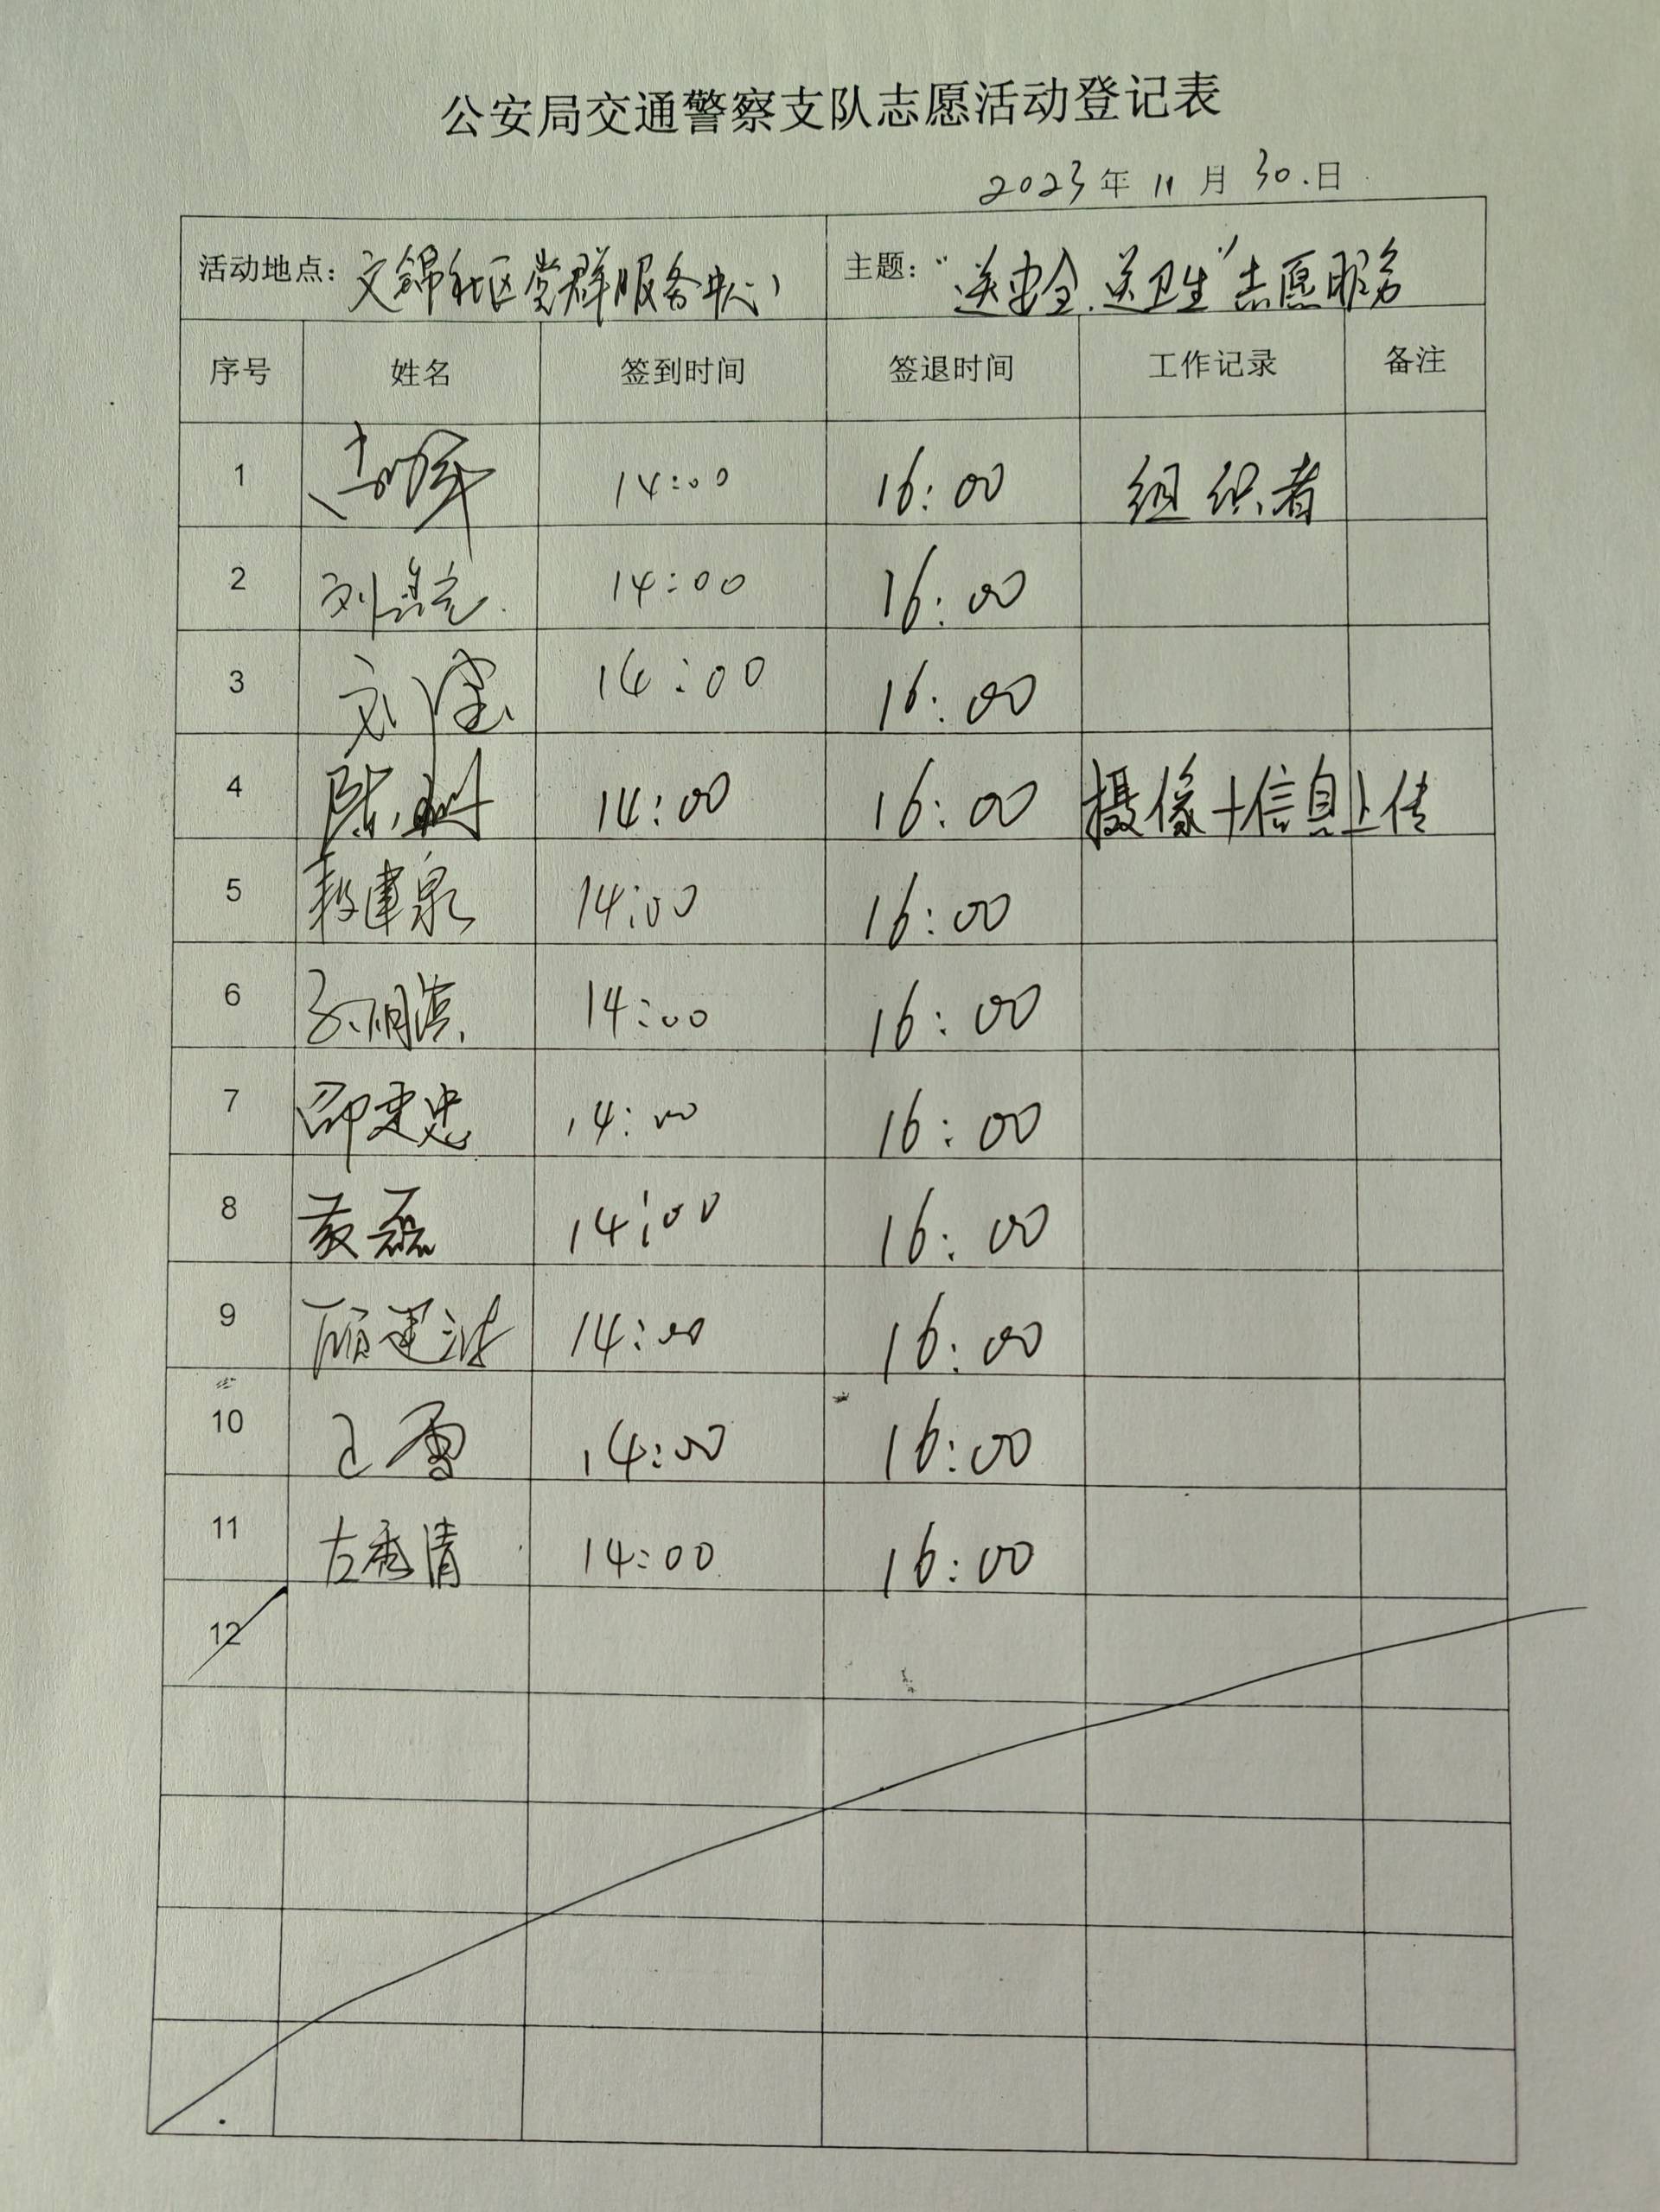 公安局交通警察支队志愿活动登记表
2023年11月30.日
活动地点：文锦社区党群服务中心 主题：“送安全.送卫生”志愿服务
序号 姓名 签到时间 签退时间 工作记录 备注
1 14:00 16:00 组织者
2 刘 14:00 16:00
3 刘 14:00 16:00
4 陈 14:00 16:00 摄像+信息上传
5 建泉 14:00 16:00
6 孙明滨 14:00 16:00
7 邵建忠 14:00 16:00
8 磊 14:00 16:00
9 顾建波 14:00 16:00
10 王雪 14:00 16:00
11 左秀清 14:00 16:00
12